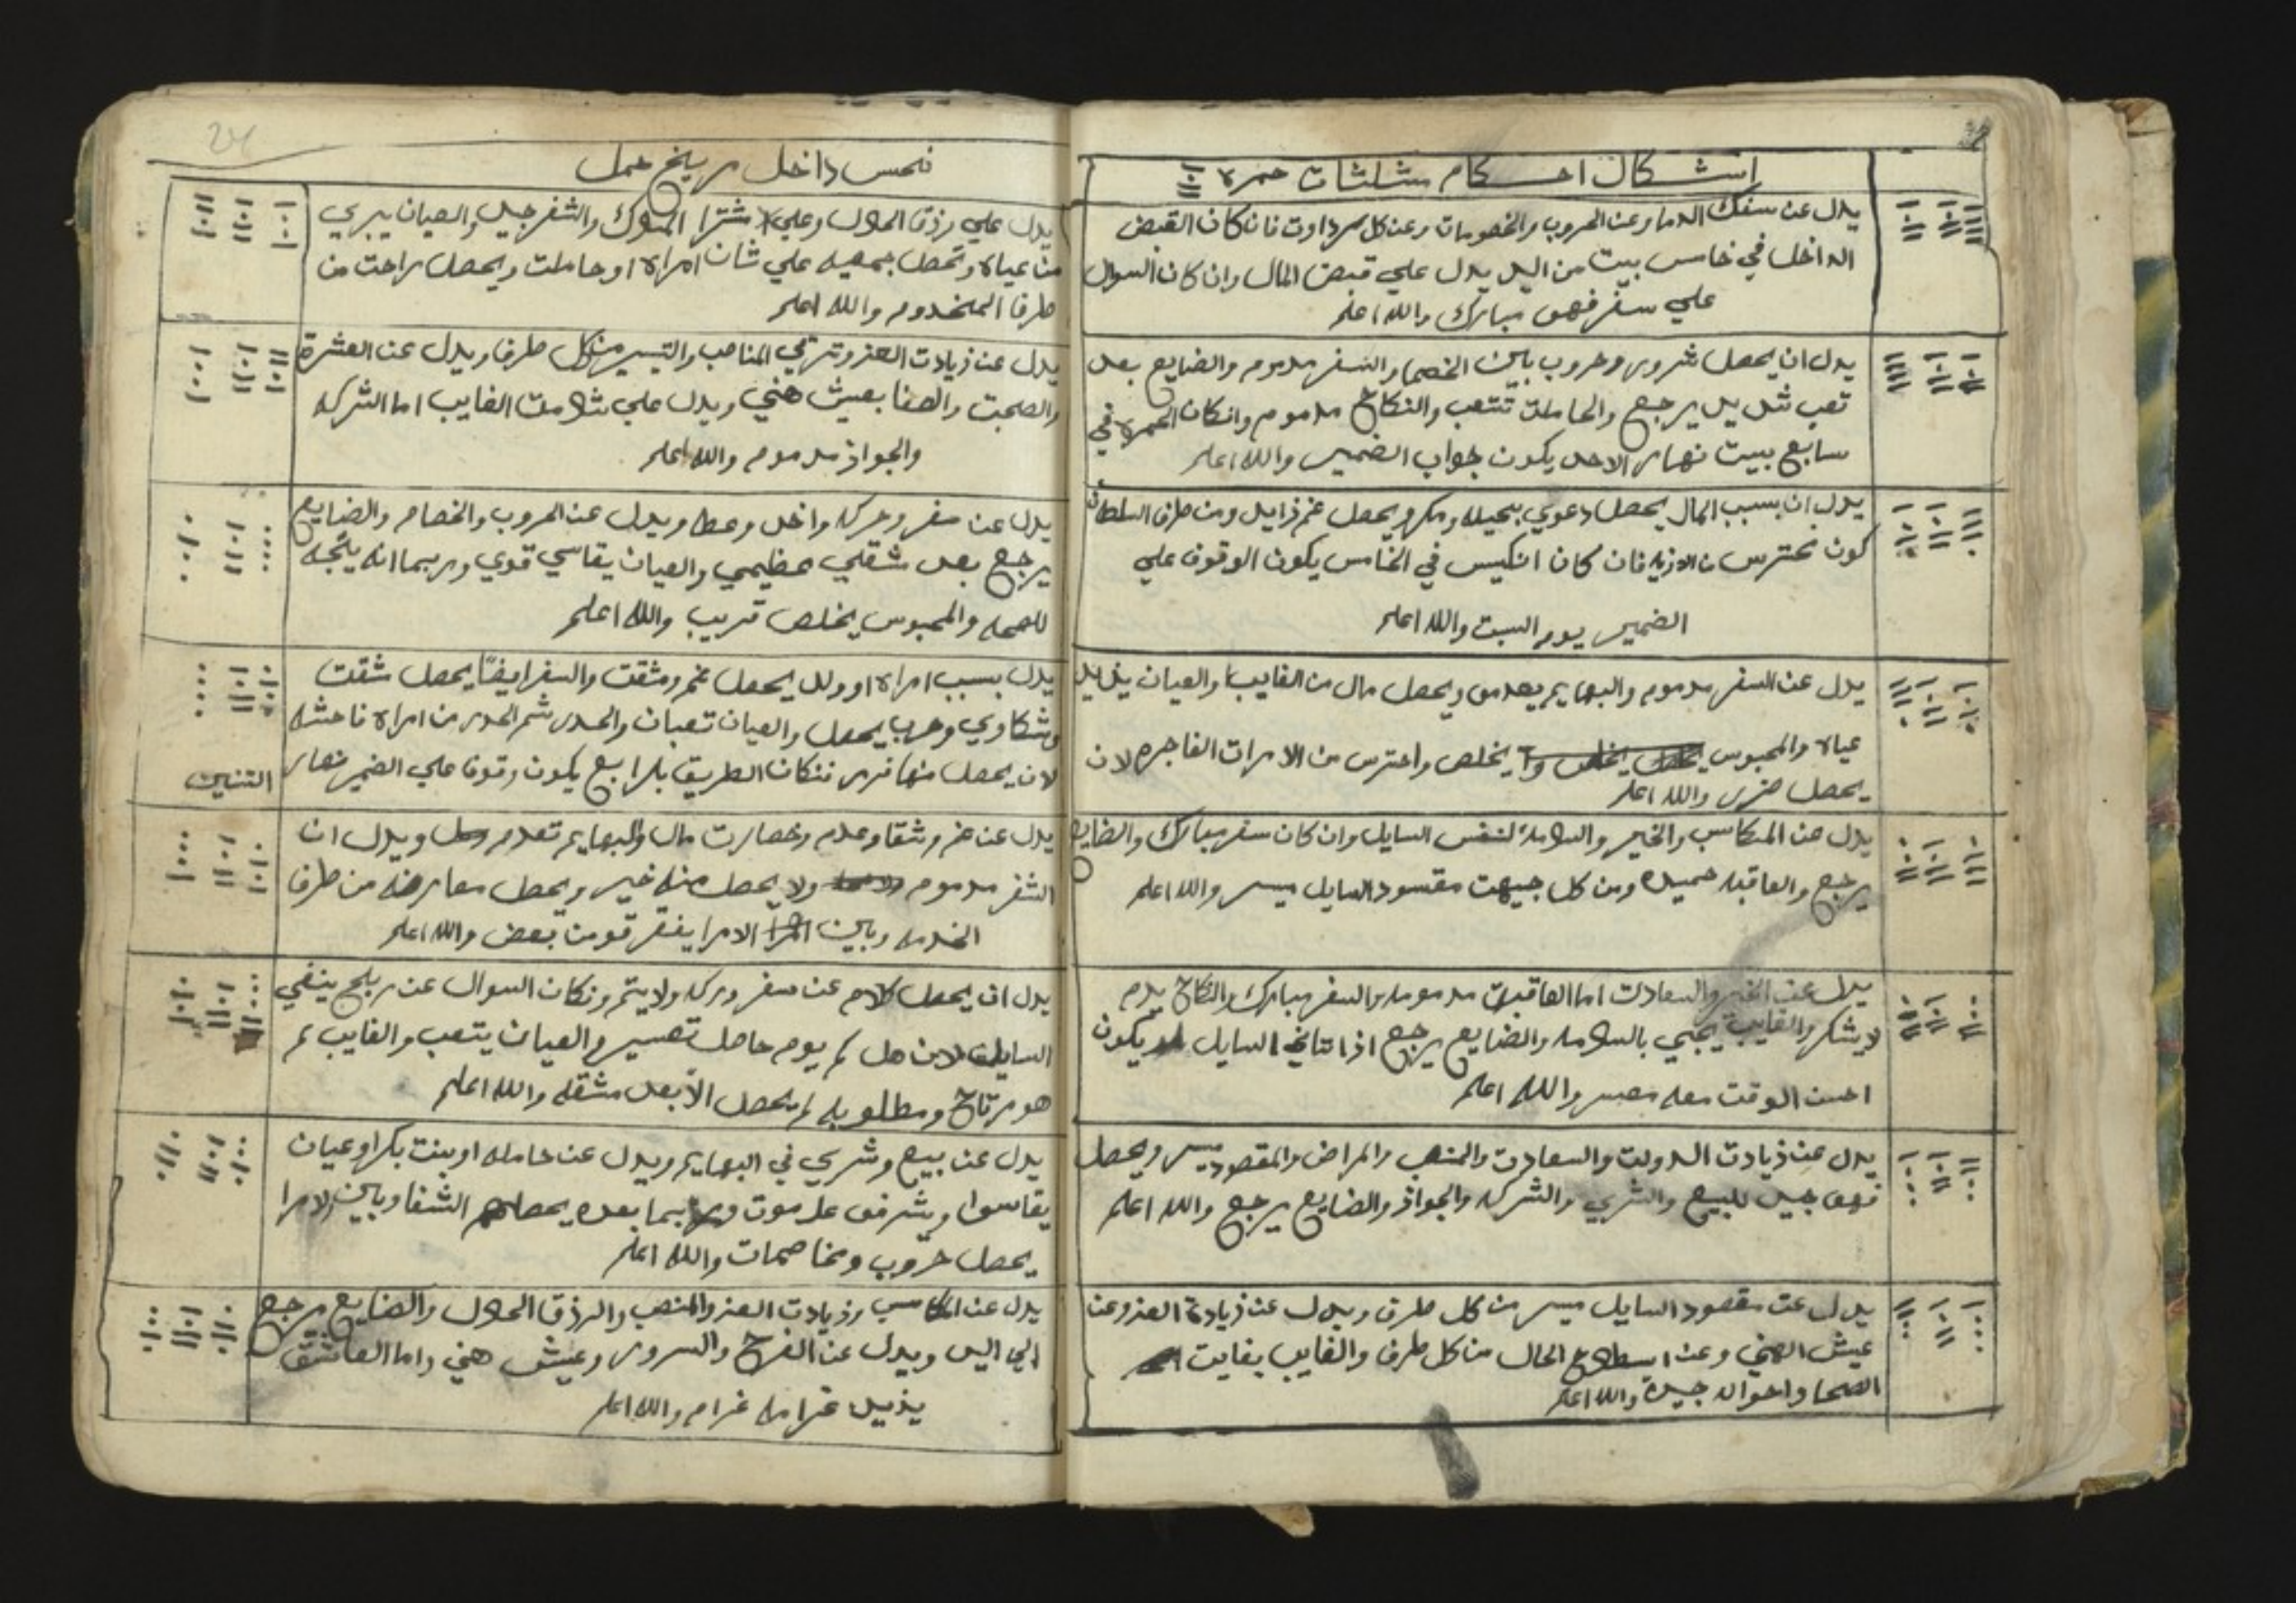 اشكال احكام مثلثات حمره
يدل عن سفك الدما وعن الحروب والخصومات وعن كل فان كان القبض
الداخل في خامس بيت من اليد يدل علي قبض المال وان كان السوال
علي سفر فهو مبارك والله اعلم
يدل ان يحصل شرور وحروب بين الخصما والسفر مدموم والضايع بعد
تعب شديد يرجع والحاملت تتعب والنكاح مدموم وانكان الحمره في
سابع بيت نهار الاحد يكون جواب الضمير والله اعلم
يدل ان بسبب المال يحصل دعوي بحيله ومكر ويحصل غم زايد ومن طرف السلطان
كون محترس من الازيه فان كان انكيس في الخامس يكون الوقوف علي
الضمير يوم السبت والله اعلم
يدل عن السفر مدموم والبهايم يعدمو ويحصل مال من الغايب والعيان يزايد
عياه والمحبوس يخلص واحترس من الامرات الفاجره لان
يحصل ضرر والله اعلم
يدل عن المكاسب والخير والسلامه لنفس السايل وان كان سفر مبارك والضايع
يرجع والعاقبه حميده ومن كل جيهت مقسود السايل ميسر والله اعلم
يدل عن الخير والسعادت اما العاقبت مدمومه والسفر مبارك والنكاح يدم
لا يشكر والغايب يجي بالسلامه والضايع يرجع اذا تتانخ السايل يكون
احسن الوقت معه معسر والله اعلم
يدل عن ذيادت الدولت والسعادت والمنصب والمراض والمقصود ميسر ويحصل
فهو جيد للبيع والشري والشركه والجواذ والضايع يرجع والله اعلم
يدل عن مقصود السايل ميسر من كل طرف ويدل عن ذيادة العز وعن
عيش الهني وعن الحال من كل طرف والغايب بغايت
الصحا واحواله جيده والله اعلم
24
نحس داخل مريخ حمل
يدل علي رزق الحلال وعلي شترا الملوك والشفر جيد والعيان يبري
من عياه ويحصل جمعيه علي شان امراه او حاملت ويحصل راحت من
طرف المخدوم والله اعلم
يدل عن ذيادت العز وترقي المناصب والتيسير من كل طرف ويدل عن العشرة
والصحبت والصفا بعيش هني ويدل علي شلامت الغايب اما الشركه
والجواذ مدموم والله اعلم
يدل عن سفر وحركه واخد وعطا ويدل عن الحروب والخصام والضايع
يرجع بعد شقلي عظيمي والعيان يقاسي قوي وربما انه يتجه
للصحه والمحبوس يخلص قريب والله اعلم
يدل بسبب امراه او ولد يحصل غم ومشقت والسفر ايضا يحصل شقت
وشكاوي وحرب يحصل والعيان تعبان والحدر شم الحدر من امراه فاحشه
لان يحصل منها ضرر فنكان الطريق بلرابع يكون وقوف علي الضمير نهار
التنين
يدل عن غم وشقا وعدم وخصارت مال والبهايم تعدم ويدل ان
الشفر مدموم ولا يحصل منه خير ويحصل معارضه من طرف
الخدمه وبين الامرا يفترقو من بعض والله اعلم
يدل ان يحصل كلام عن سفر وركه ولا يتم ونكان السوال عن ربلح ينفي
السايل كل يوم حاصل تعسير والعيان يتعب والغايب لم
هو مرتاح ومطلوبه لم يحصل الا بعد مشقه والله اعلم
يدل عن بيع وشري في البهايم ويدل عن حامله او بنت بكر او عيان
يقاسوا ويشرفو علا موت وربما بعده يحصل الشفا وبين الامرا
يحصل حروب ومخاصمات والله اعلم
يدل عن المكاسب وزيادت العز والمنصب والرزق الحلال والضايع يرجع
الي اليد ويدل عن الفرح والسرور وعيش هني واما العاشق
يذيد غرامه غرام والله اعلم